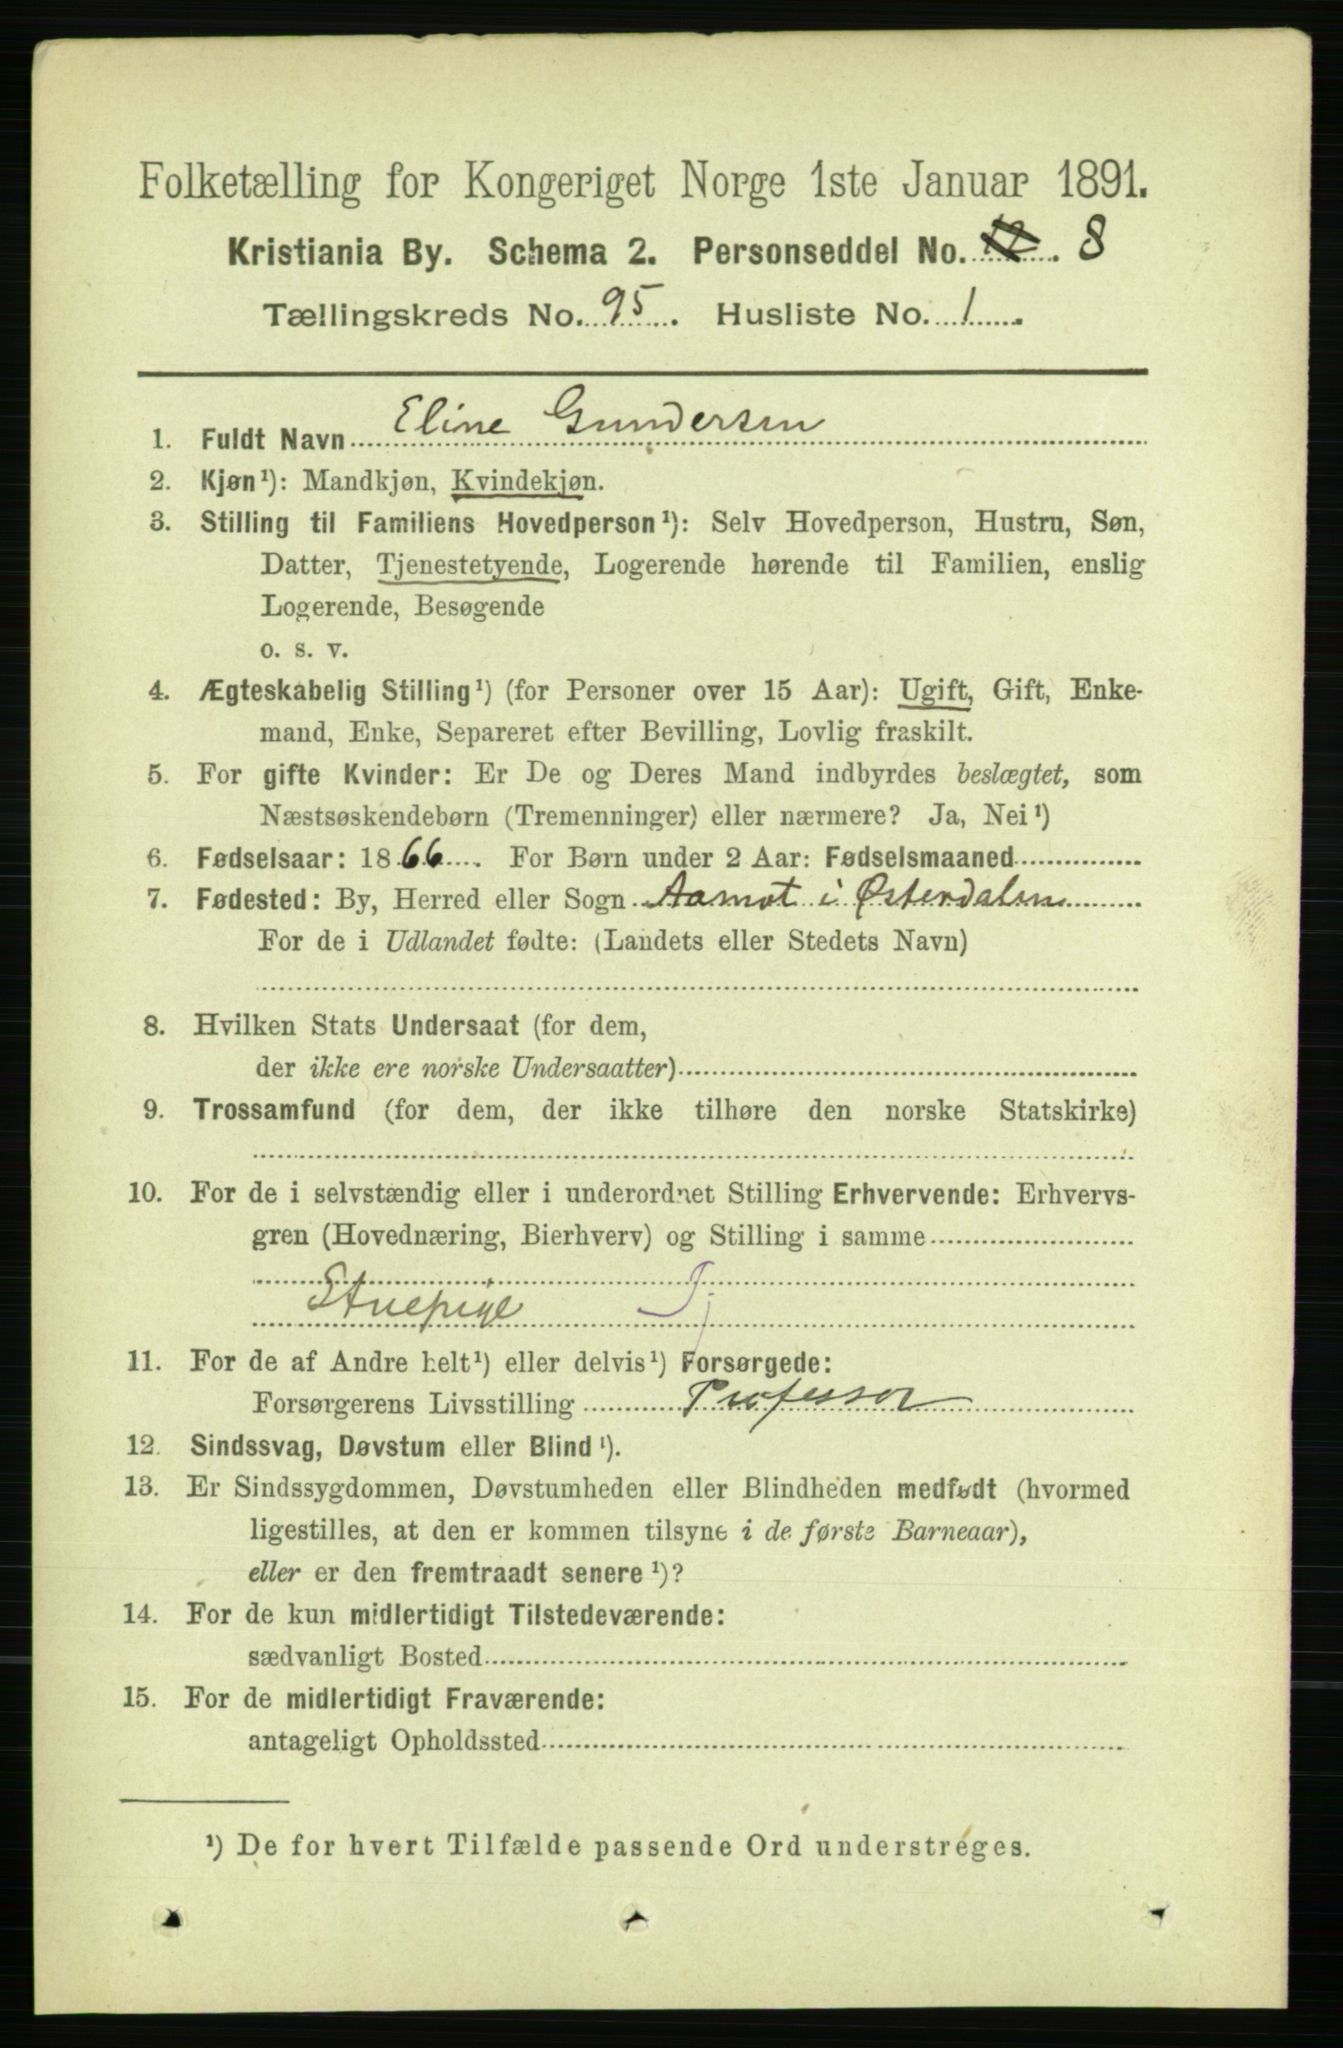 Folketælling for Kongeriget Norge 1ste Januar 1891.
Kristiania By. Schema 2. Personseddel No. 8
Tællingskreds No. 95. Husliste No. 1
1. Fuldt Navn Eline Gundersen
2. Kjøn¹): Mandkjøn, Kvindekjøn.
3. Stilling til Familiens Hovedperson¹): Selv Hovedperson, Hustru, Søn,
Datter, Tjenestetyende, Logerende hørende til Familien, enslig
Logerende, Besøgende
o. s. v.
4. Ægteskabelig Stilling¹) (for Personer over 15 Aar): Ugift, Gift, Enke-
mand, Enke, Separeret efter Bevilling, Lovlig fraskilt.
5. For gifte Kvinder: Er De og Deres Mand indbyrdes beslægtet, som
Næstsøskendebørn (Tremenninger) eller nærmere? Ja, Nei¹)
6. Fødselsaar: 1866. For Børn under 2 Aar: Fødselsmaaned
7. Fødested: By, Herred eller Sogn Aamot i Østerdalen
For de i Udlandet fødte: (Landets eller Stedets Navn)
8. Hvilken Stats Undersaat (for dem,
der ikke ere norske Undersaatter)
9. Trossamfund (for dem, der ikke tilhøre den norske Statskirke)
10. For de i selvstændig eller i underordnet Stilling Erhvervende: Erhvervs-
gren (Hovednæring, Bierhverv) og Stilling i samme
Stuepige Tj
11. For de af Andre helt¹) eller delvis¹) Forsørgede:
Forsørgerens Livsstilling Professor
12. Sindssvag, Døvstum eller Blind¹).
13. Er Sindssygdommen, Døvstumheden eller Blindheden medfødt (hvormed
ligestilles, at den er kommen tilsyne i de første Barneaar),
eller er den fremtraadt senere¹)?
14. For de kun midlertidigt Tilstedeværende:
sædvanligt Bosted
15. For de midlertidigt Fraværende:
antageligt Opholdssted
¹) De for hvert Tilfælde passende Ord understreges.